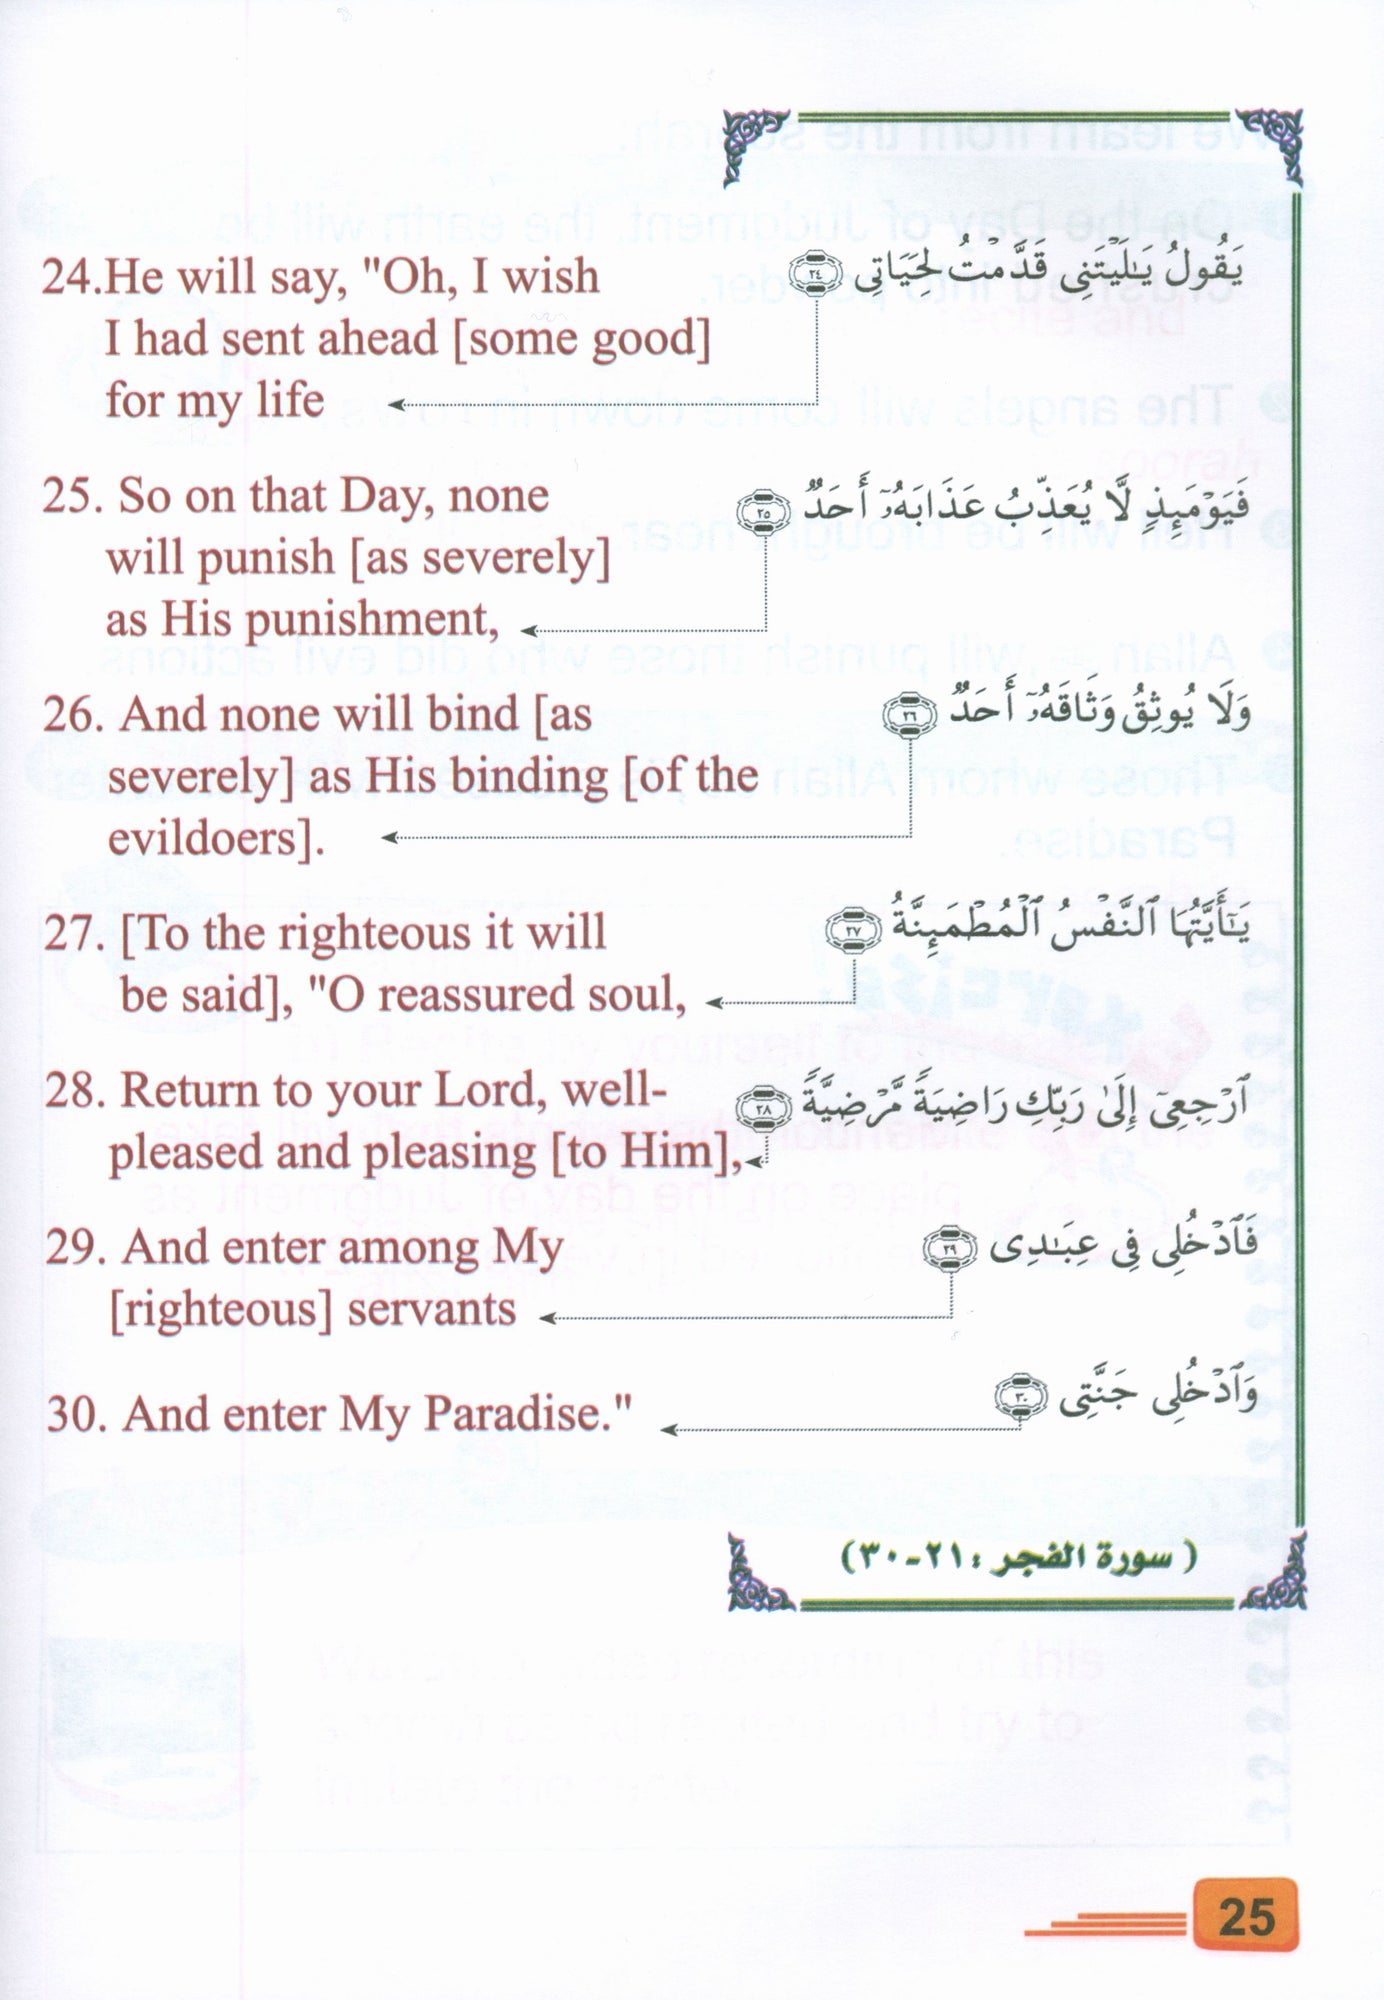 24.He will say, "Oh, I wish
I had sent ahead [some good]
for my life
يَقُولُ يَـٰلَيْتَنِى قَدَّمْتُ لِحَيَاتِى ٢٤
25. So on that Day, none
will punish [as severely]
as His punishment,
فَيَوْمَئِذٍ لَّا يُعَذِّبُ عَذَابَهُۥٓ أَحَدٌ ٢٥
26. And none will bind [as
severely] as His binding [of the
evildoers].
وَلَا يُوثِقُ وَثَاقَهُۥٓ أَحَدٌ ٢٦
27. [To the righteous it will
be said], "O reassured soul,
يَـٰٓأَيَّتُهَا ٱلنَّفْسُ ٱلْمُطْمَئِنَّةُ ٢٧
28. Return to your Lord, well-
pleased and pleasing [to Him],
ٱرْجِعِىٓ إِلَىٰ رَبِّكِ رَاضِيَةً مَّرْضِيَّةً ٢٨
29. And enter among My
[righteous] servants
فَٱدْخُلِى فِى عِبَـٰدِى ٢٩
30. And enter My Paradise."
وَٱدْخُلِى جَنَّتِى ٣٠
( سورة الفجر : ٢١-٣٠)
25